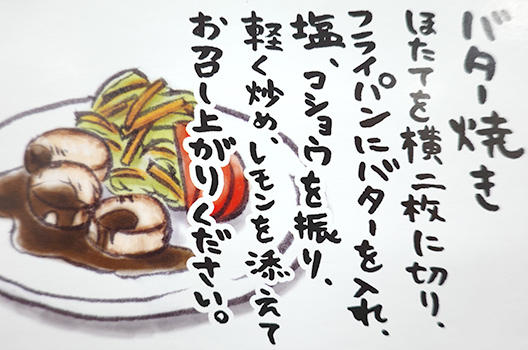 バター焼き
ほたてを横二枚に切り、
フライパンにバターを入れ、
塩、コショウを振り、
軽く炒め、レモンを添えて
お召し上がりください。